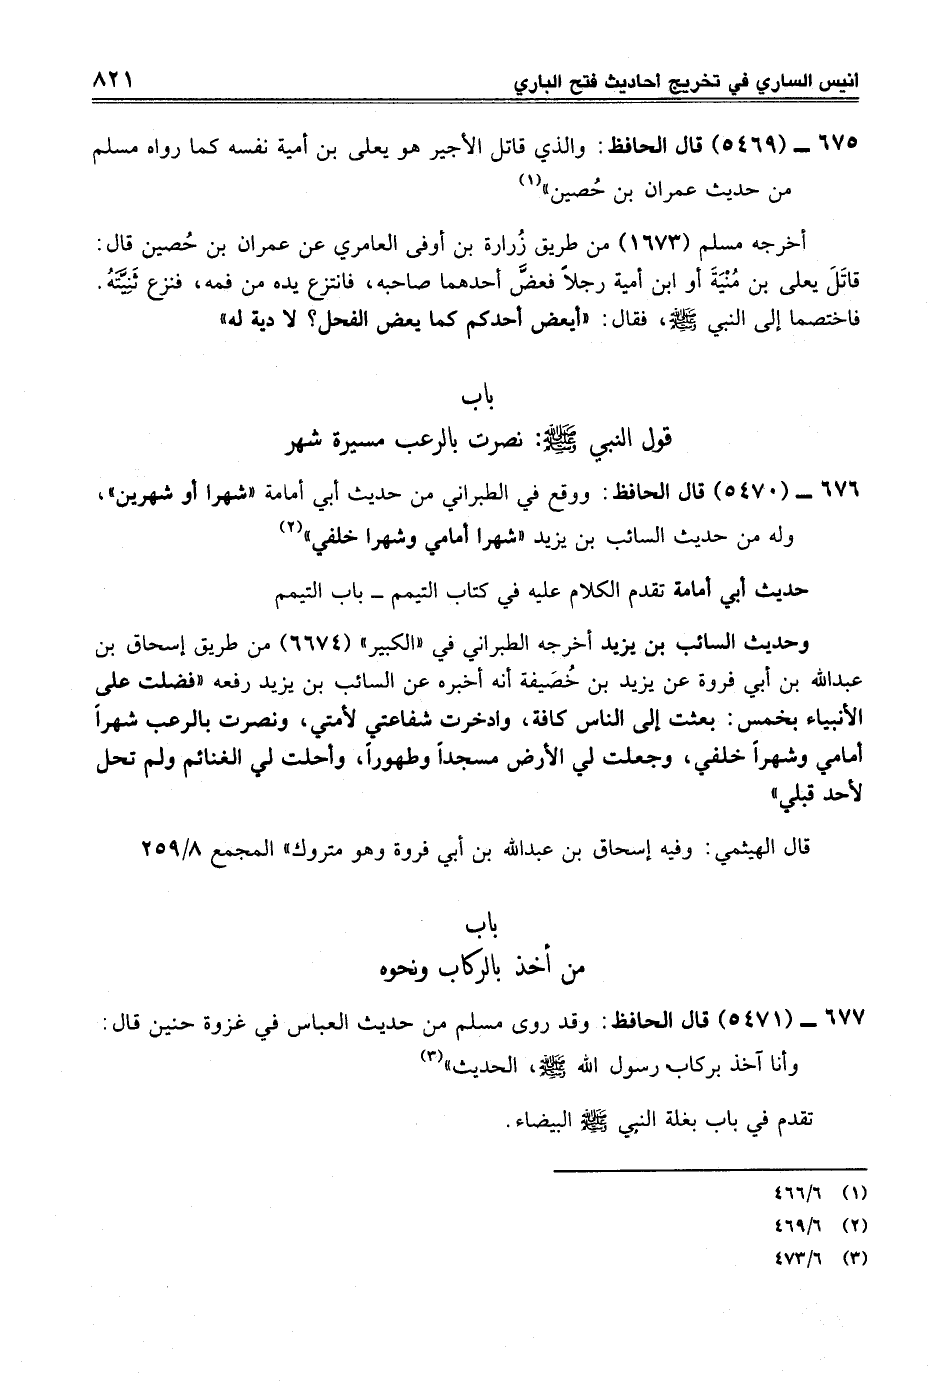 أنيس الساري في تخريج أحاديث فتح الباري ٨٢١
٦٧٥ ــ (٥٤٦٩) قال الحافظ: والذي قاتل الأجير هو يعلى بن أمية نفسه كما رواه مسلم
من حديث عمران بن حُصين»(١)
أخرجه مسلم (١٦٧٣) من طريق زُرارة بن أوفى العامري عن عمران بن حُصين قال:
قاتَلَ يعلى بن مُنْيَةَ أو ابن أمية رجلاً فعضَّ أحدهما صاحبه، فانتزع يده من فمه، فنزع ثَنِيَّتَهُ.
فاختصما إلى النبي ﷺ، فقال: «أيعض أحدكم كما يعض الفحل؟ لا دية له»
باب
قول النبي ﷺ: نصرت بالرعب مسيرة شهر
٦٧٦ ــ (٥٤٧٠) قال الحافظ: ووقع في الطبراني من حديث أبي أمامة «شهرا أو شهرين»،
وله من حديث السائب بن يزيد «شهرا أمامي وشهرا خلفي»(٢)
حديث أبي أمامة تقدم الكلام عليه في كتاب التيمم ــ باب التيمم
وحديث السائب بن يزيد أخرجه الطبراني في «الكبير» (٦٦٧٤) من طريق إسحاق بن
عبدالله بن أبي فروة عن يزيد بن خُصَيفة أنه أخبره عن السائب بن يزيد رفعه «فضلت على
الأنبياء بخمس: بعثت إلى الناس كافة، وادخرت شفاعتي لأمتي، ونصرت بالرعب شهراً
أمامي وشهراً خلفي، وجعلت لي الأرض مسجداً وطهوراً، وأحلت لي الغنائم ولم تحل
لأحد قبلي»
قال الهيثمي: وفيه إسحاق بن عبدالله بن أبي فروة وهو متروك» المجمع ٢٥٩/٨
باب
من أخذ بالركاب ونحوه
٦٧٧ ــ (٥٤٧١) قال الحافظ: وقد روى مسلم من حديث العباس في غزوة حنين قال:
وأنا آخذ بركاب رسول الله ﷺ، الحديث»(٣)
تقدم في باب بغلة النبي ﷺ البيضاء.
(١) ٤٦٦/٦
(٢) ٤٦٩/٦
(٣) ٤٧٣/٦